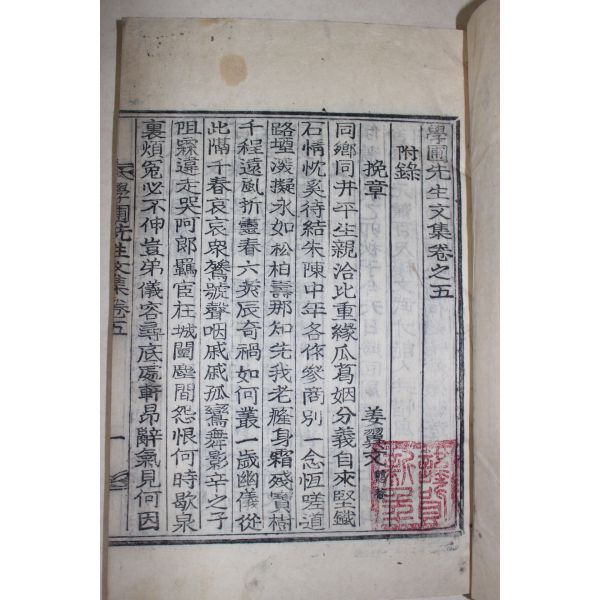 學圃先生文集卷之五
附錄
挽章
姜翼文
同鄉同井平生親洽比重緣瓜葛姻分義自來堅鐵
石情忱奚待結朱陳中年各作參商別一念恆嗟道
路堙漫擬永如松柏壽那知先我老癃身霜殘寶樹
千程遠風折靈春六癸辰奇禍如何叢一歲幽儀從
此隔千春哀哀衆鶖號聲咽戚戚孤鸞舞影辛之子
阻霖違走哭阿郞羈宦在城闉塵間怨恨何時歇泉
裏煩冤必不伸豈弟儀容尋底處軒昂辭氣見何因
學圃先生文集卷五
一